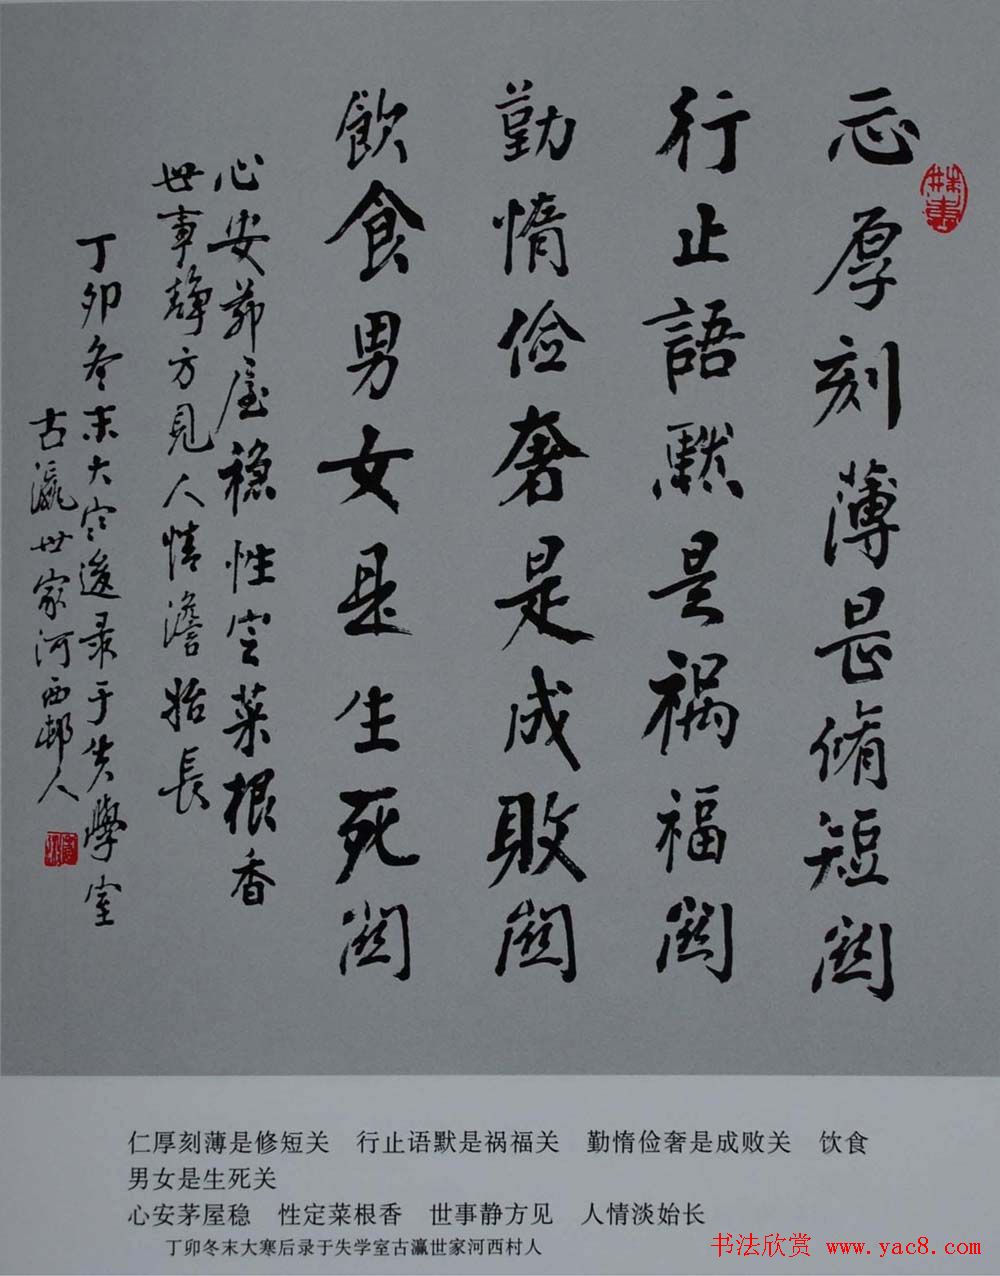 忈厚刻薄是脩短關
行止語默是禍福關
勤惰儉奢是成敗關
飲食男女是生死關
心安茅屋穩性定菜根香
世事靜方見人情澹始長
丁卯冬末大寒後录于失學室
古瀛世家河西邨人
仁厚刻薄是修短关 行止语默是祸福关 勤惰俭奢是成败关 饮食
男女是生死关
心安茅屋稳 性定菜根香 世事静方见 人情淡始长
丁卯冬末大寒后录于失学室古瀛世家河西村人
书法欣赏 www.yac8.com